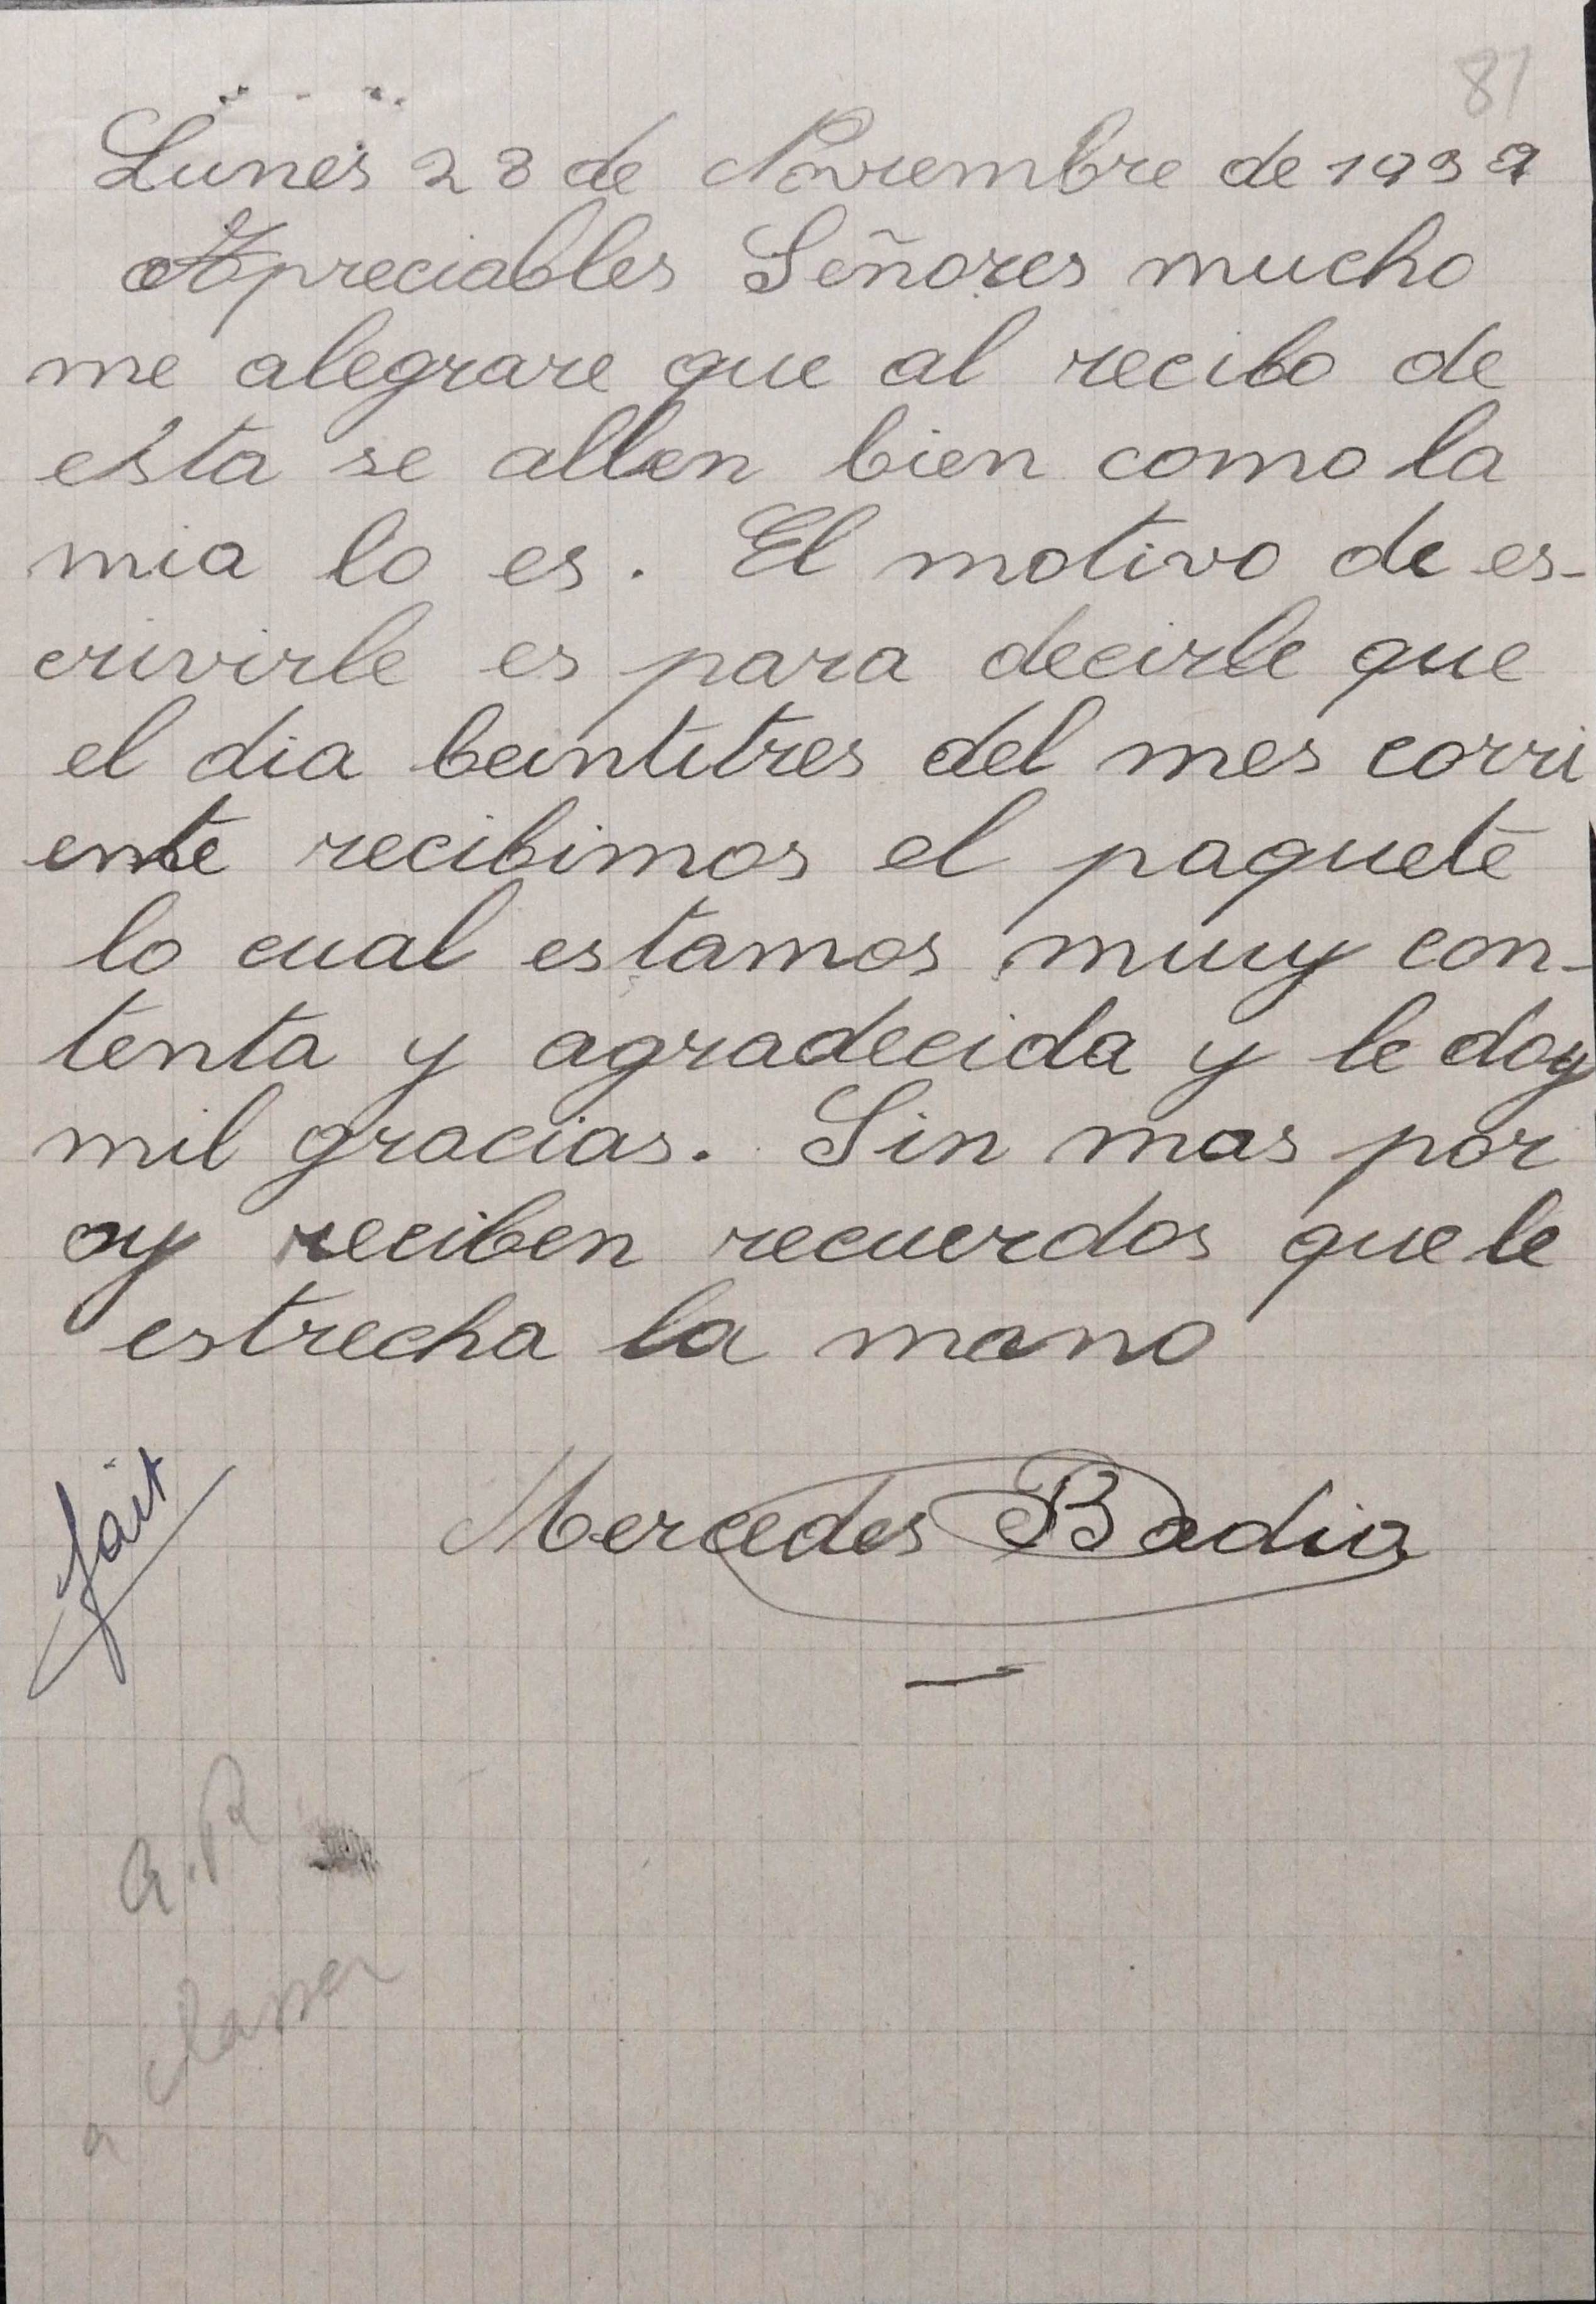 81
Lunes 28 de Noviembre de 1939
Apreciables Señores mucho
me alegrare que al recibo de
esta se allen bien como la
mia lo es. El motivo de es-
crivirle es para decirle que
el dia beintitres del mes corri
ente recibimos el paquete
lo cual estamos muy con-
tenta y agradecida y le doy
mil gracias. Sin mas por
oy reciben recuerdos que le
estrecha la mano
Mercedes Badia
fait
a.R
a classer